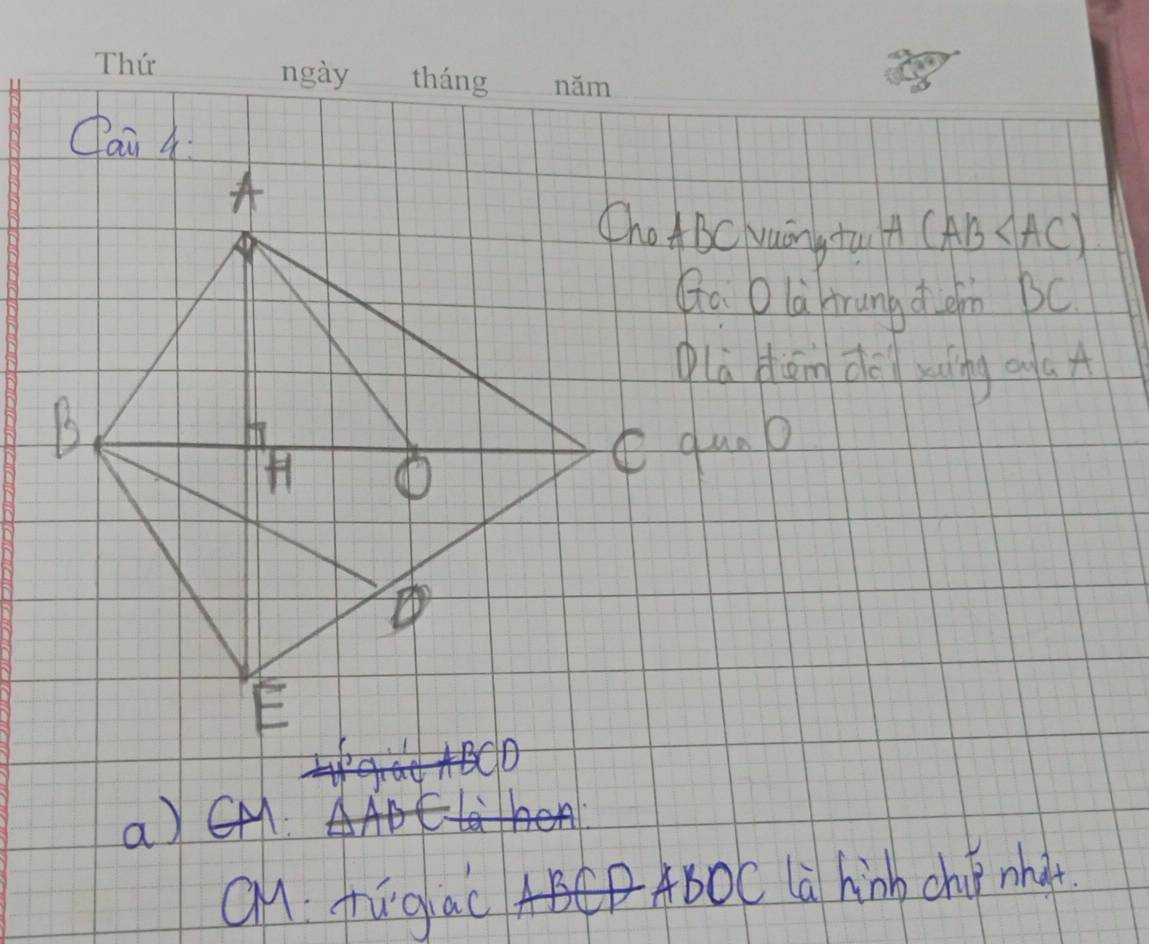 Thứ ngày tháng năm
Câu 4:
A
Cho ABC vuông tại A (AB < AC)
Gọi O là trung điểm BC
D là điểm đối xứng của A
B H O C qua O
D
E
tứ giác ABCD
a) CM: ΔABC là hcn
CM: tứ giác ABCD ABDC là hình chữ nhật.